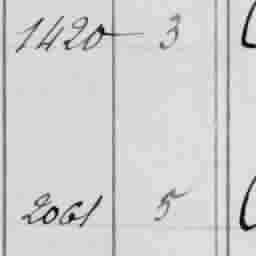 1420 3
2061 5